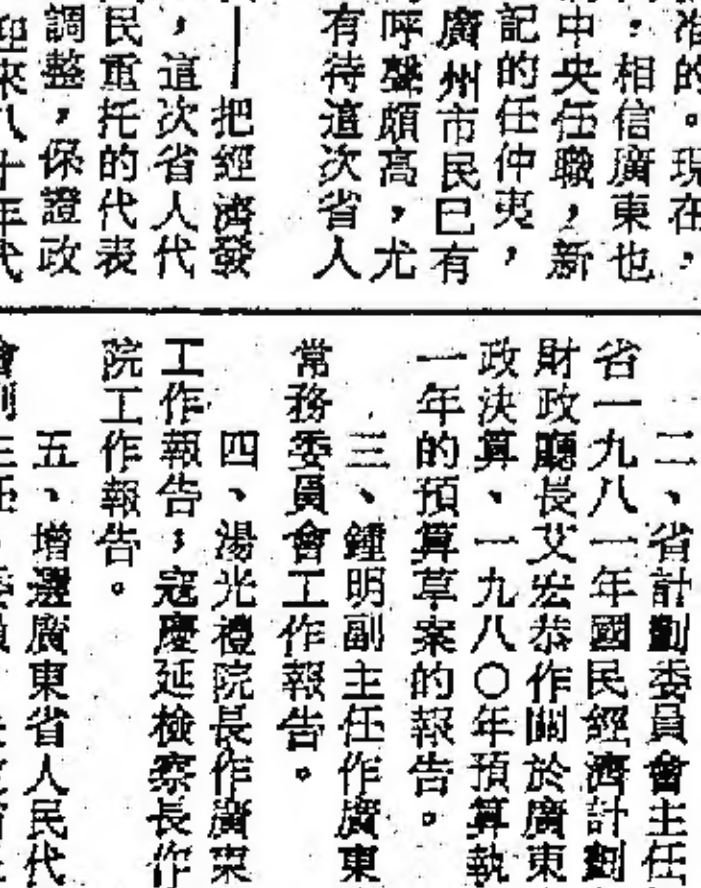 准的。現在，
，相信廣東也
中央任職，新
記的任仲夷，
廣州市民已有
呼聲頗高，尤
有待這次省人
——把經濟發
，這次省人代
民重托的代表
調整，保證政
迎來八十年代
二、省計劃委員會主任
省一九八一年國民經濟計劃
財政廳長艾宏恭作關於廣東
政決算、一九八〇年預算執
一年的預算草案的報告。
三、鍾明副主任作廣東
常務委員會工作報告。
四、湯光禮院長作廣東
工作報告，寇慶延檢察長作
院工作報告。
五、增選廣東省人民代
會副主任、委員